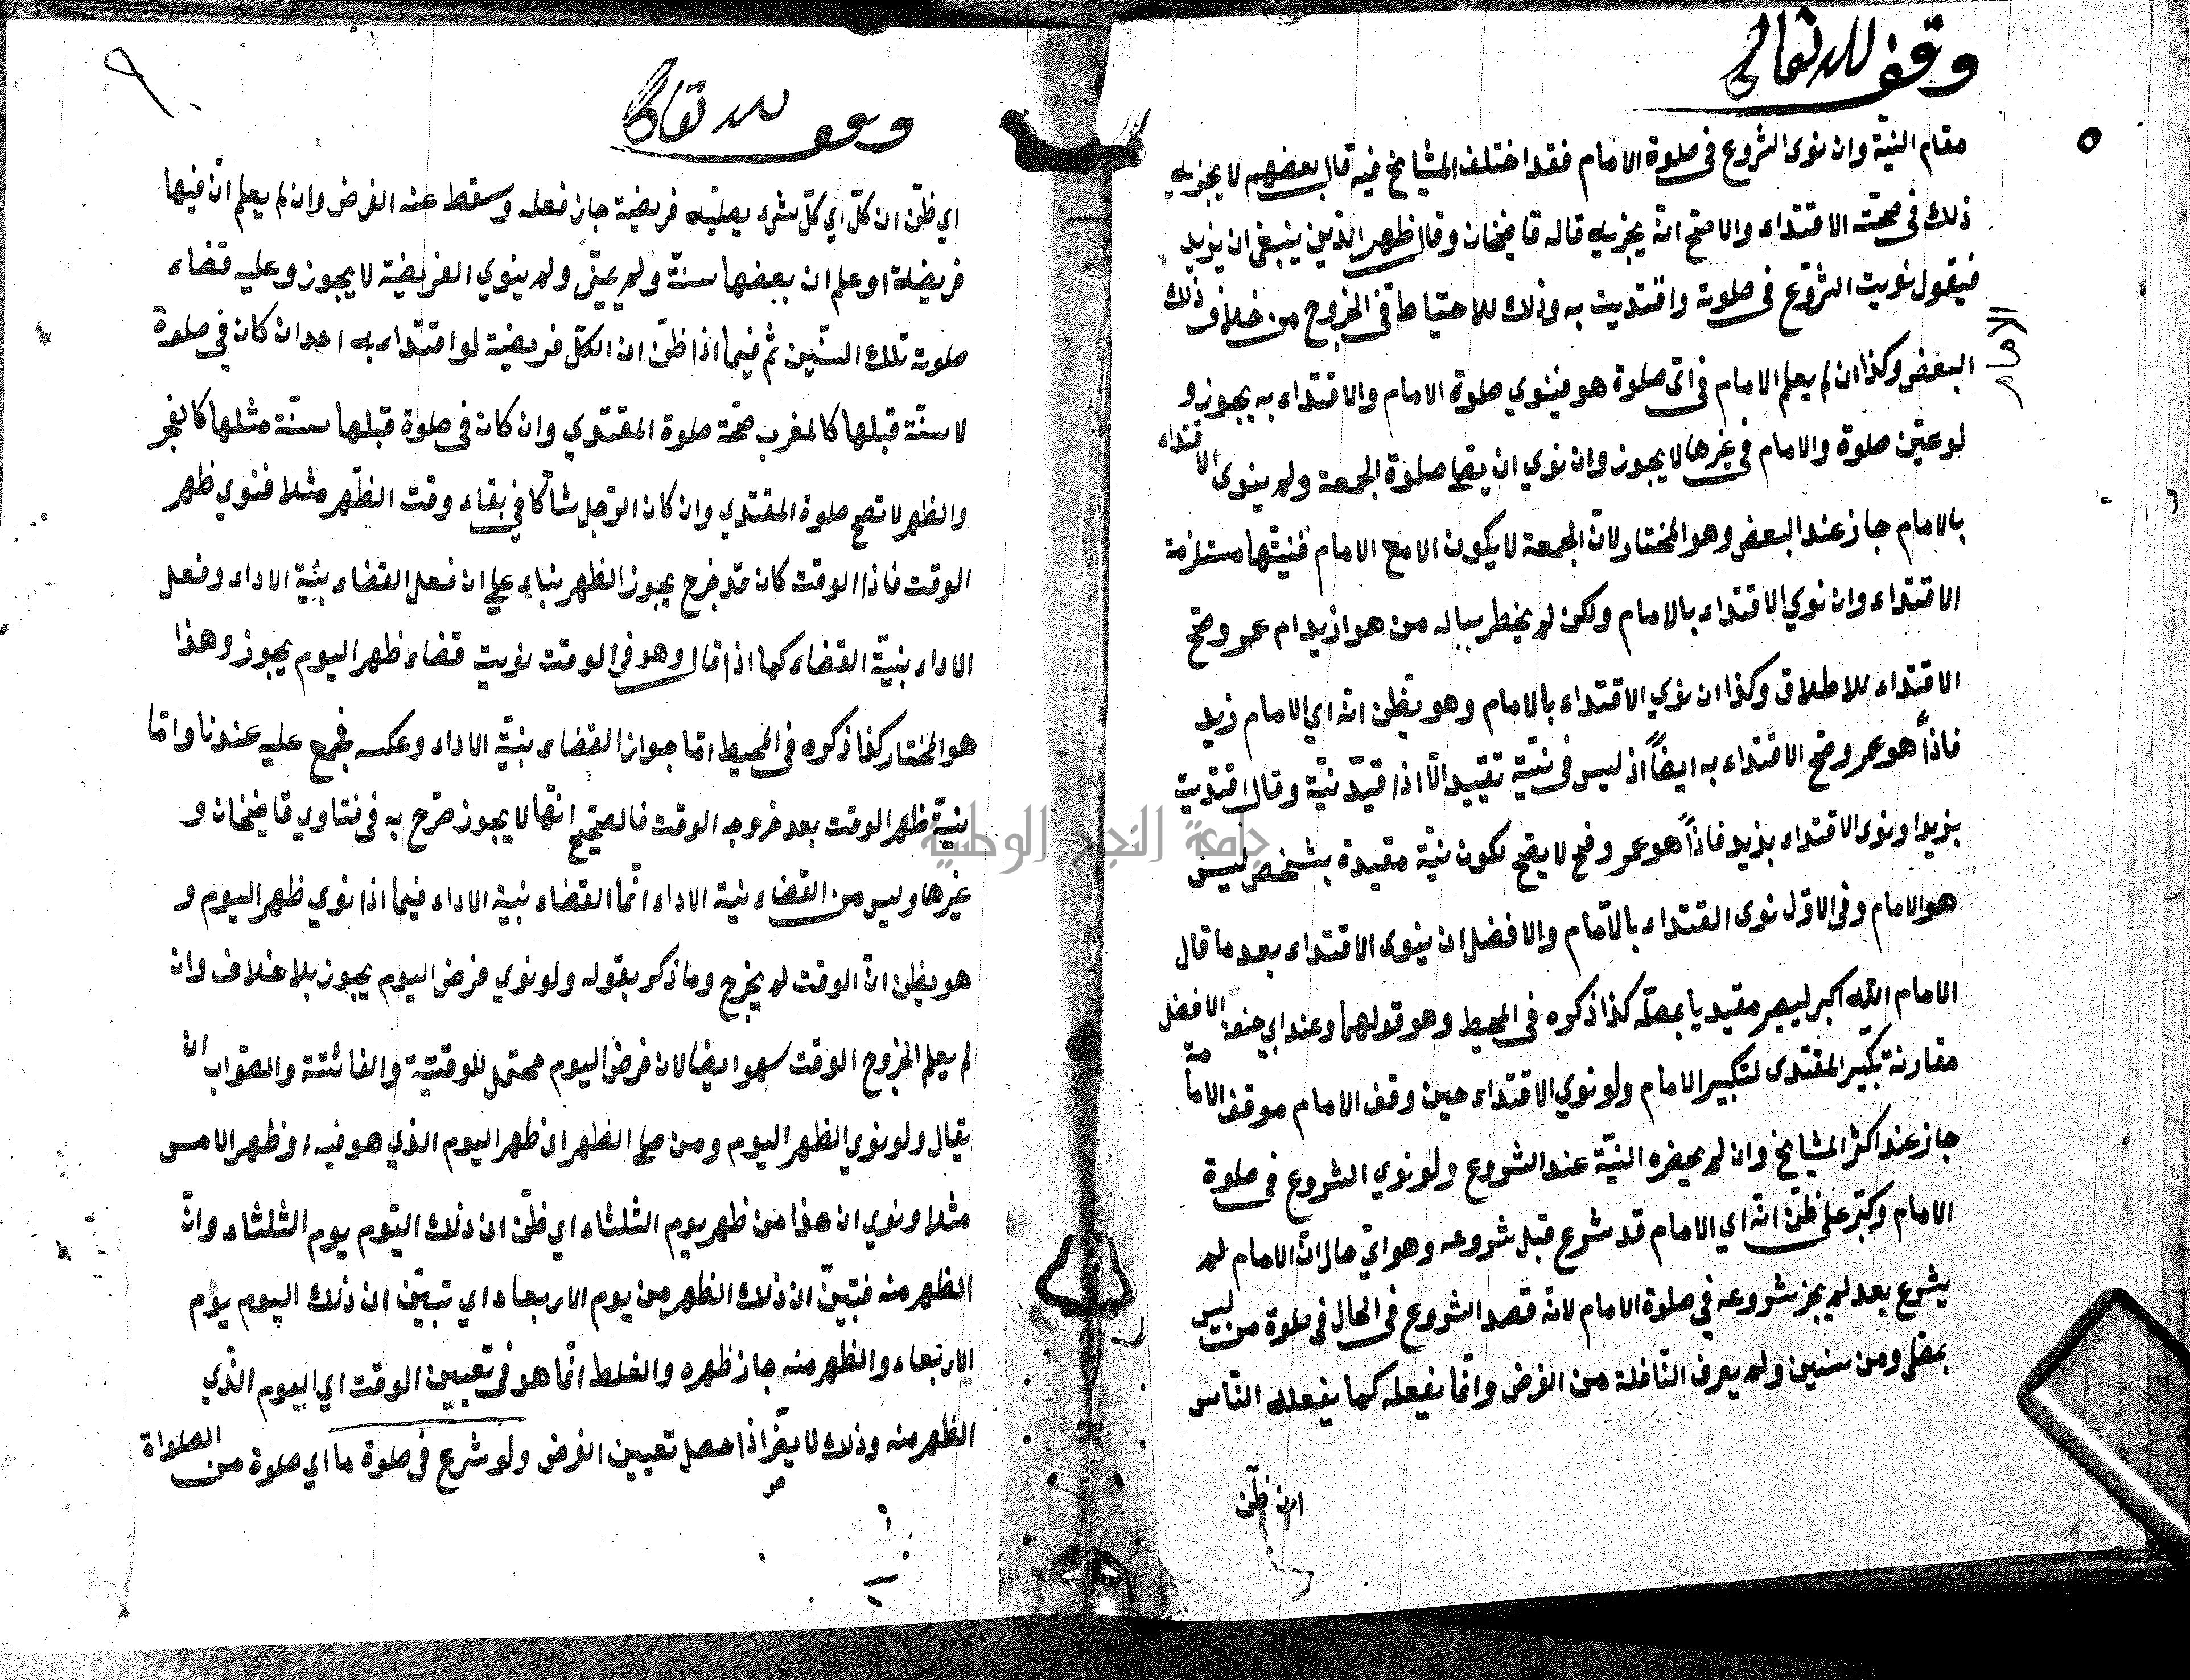 وقف لله تعالى
مقام النية وان نوى الشروع فى صلوة الامام فقد اختلف المشايخ فيه قال بعضهم لا يجزيه
ذلك فى صحة الاقتداء والاصح انه يجزيه قاله قاضخان وقال ظهر الدين ينبغى ان يزيد
فيقول نويت الشروع فى صلوته واقتديت به وذلك للاحتياط فى الخروج من خلاف ذلك
الامام
البعض وكذا ان لم يعلم الامام فى اى صلوة هو فينوي صلوة الامام والاقتداء به يجوز و
لو عيّن صلوة والامام فى غيرها لا يجوز وان نوي ان يصلى صلوة الجمعة ولم ينوى الاقتداء
بالامام جاز عند البعض وهو المختار لان الجمعة لا يكون الا مع الامام فنيتها مستلزمة
الاقتداء وان نوي الاقتداء بالامام ولكن لم يخطر بباله من هو ازيد ام عمرو صح
الاقتداء للاطلاق وكذا ان نوي الاقتداء بالامام وهو يظن انه اي الامام زيد
فاذا هو عمرو صح الاقتداء به ايضاً اذ ليس فى نيّته تقييد الّا اذا قيّد نيّة وقال اقتديت
بزيد او نوى الاقتداء بزيد فاذاً هو عمرو فح لا يصح لكون نيّة مقيدة بشخص ليس
هو الامام وفى الاوّل نوى القتداء بالامام والافضل ان ينوى الاقتداء بعد ما قال
الامام الله اكبر ليصر مقيديا بمصلّ كذا ذكره فى المحيط وهو قولهما وعند ابي حنفة الافضل
مقارنة تكبّير المقتدى لتكبير الامام ولو نوي الاقتداء حين وقف الامام موقف الامامة
جاز عند اكثر المشايخ وان لم يحضره النيّة عند الشروع ولو نوي الشروع فى صلوة
الامام وكبّر على ظنّ انه اي الامام قد شرع قبل شروعه وهو ايّ حال انّ الامام لم
يشرع بعد لم يجز شروعه في صلوة الامام لانه قصد الشروع فى الحال فى صلوة من ليس
بمصلى ومن سنين ولم يعرف النّافلة من الفرض وانّما يفعله كما يفعله النّاس
ان ظنّ
وقف لله تعالى
اي ظنّ ان كلّ اي كلّ شىء يصليه فريضة جاز فعله وسقط عنه الفرض وان لم يعلم انّ فيها
فريضة او علم ان بعضها سنة ولم يعيّن ولم ينوي الفريضة لا يجوز وعليه قضاء
صلوته تلك السّنين ثم فيما اذا ظنّ ان الكلّ فريضة لو اقتداء به احد ان كان في صلوة
لا سنّة قبلها كالمغرب صحّة صلوة المقتدي وان كان فى صلوة قبلها سنّة مثلها كالفجر
والظهر لا تصح صلوة المقتدي وان كان الرّجل شاكّا في بقاء وقت الظهر مثلا فنوي ظهر
الوقت فاذا الوقت كان قد خرج يجوز الظهر بناء على ان فعل القضاء بنيّة الاداء وفعل
الاداء بنيّة القضاء كما اذا قال وهو في الوقت نويت قضاء ظهر اليوم يجوز وهذا
هو المختار كذا ذكره فى المحيط امّا جواز القضاء بنيّة الاداء وعكسه فجمع عليه عندنا وامّا
بنيّة ظهر الوقت بعد خروجه الوقت فالصّحيح انّها لا يجوز صرّح به فى فتاوي قاضخان و
غيرها وليس من القضاء نية الاداء انّما القضاء بنية الاداء فيما اذا نوي ظهر اليوم و
هو يظن انّ الوقت لم يخرج وما ذكر بقوله ولو نوي فرض اليوم يجوز بلا خلاف وان
لم يعلم الخروج الوقت سهو ايضا لان فرض اليوم محتمل للوقتيّة والفائتة والصّواب ان
يقال ولو نوي الظهر اليوم ومن صلى الظهر اى ظهر اليوم الذي هو فيه او ظهر الامس
مثلا ونوي ان هذا من ظهر يوم الثلثاء اي ظنّ ان ذلك اليّوم يوم الثلثاء وانّ
الظهر منه فتبيّن ان ذلك الظهر من يوم الاربعاء اي تبيّن ان ذلك اليوم يوم
الاربعاء والظهر منه جاز ظهره والغلط انّما هو فى تعيين الوقت اي اليوم الذّي
الظهر منه وذلك لا يضرّ اذا حصل تعيين الفرض ولو شرع فى صلوة ما اي صلوة من الصلواة
جامعة النجاح الوطنية